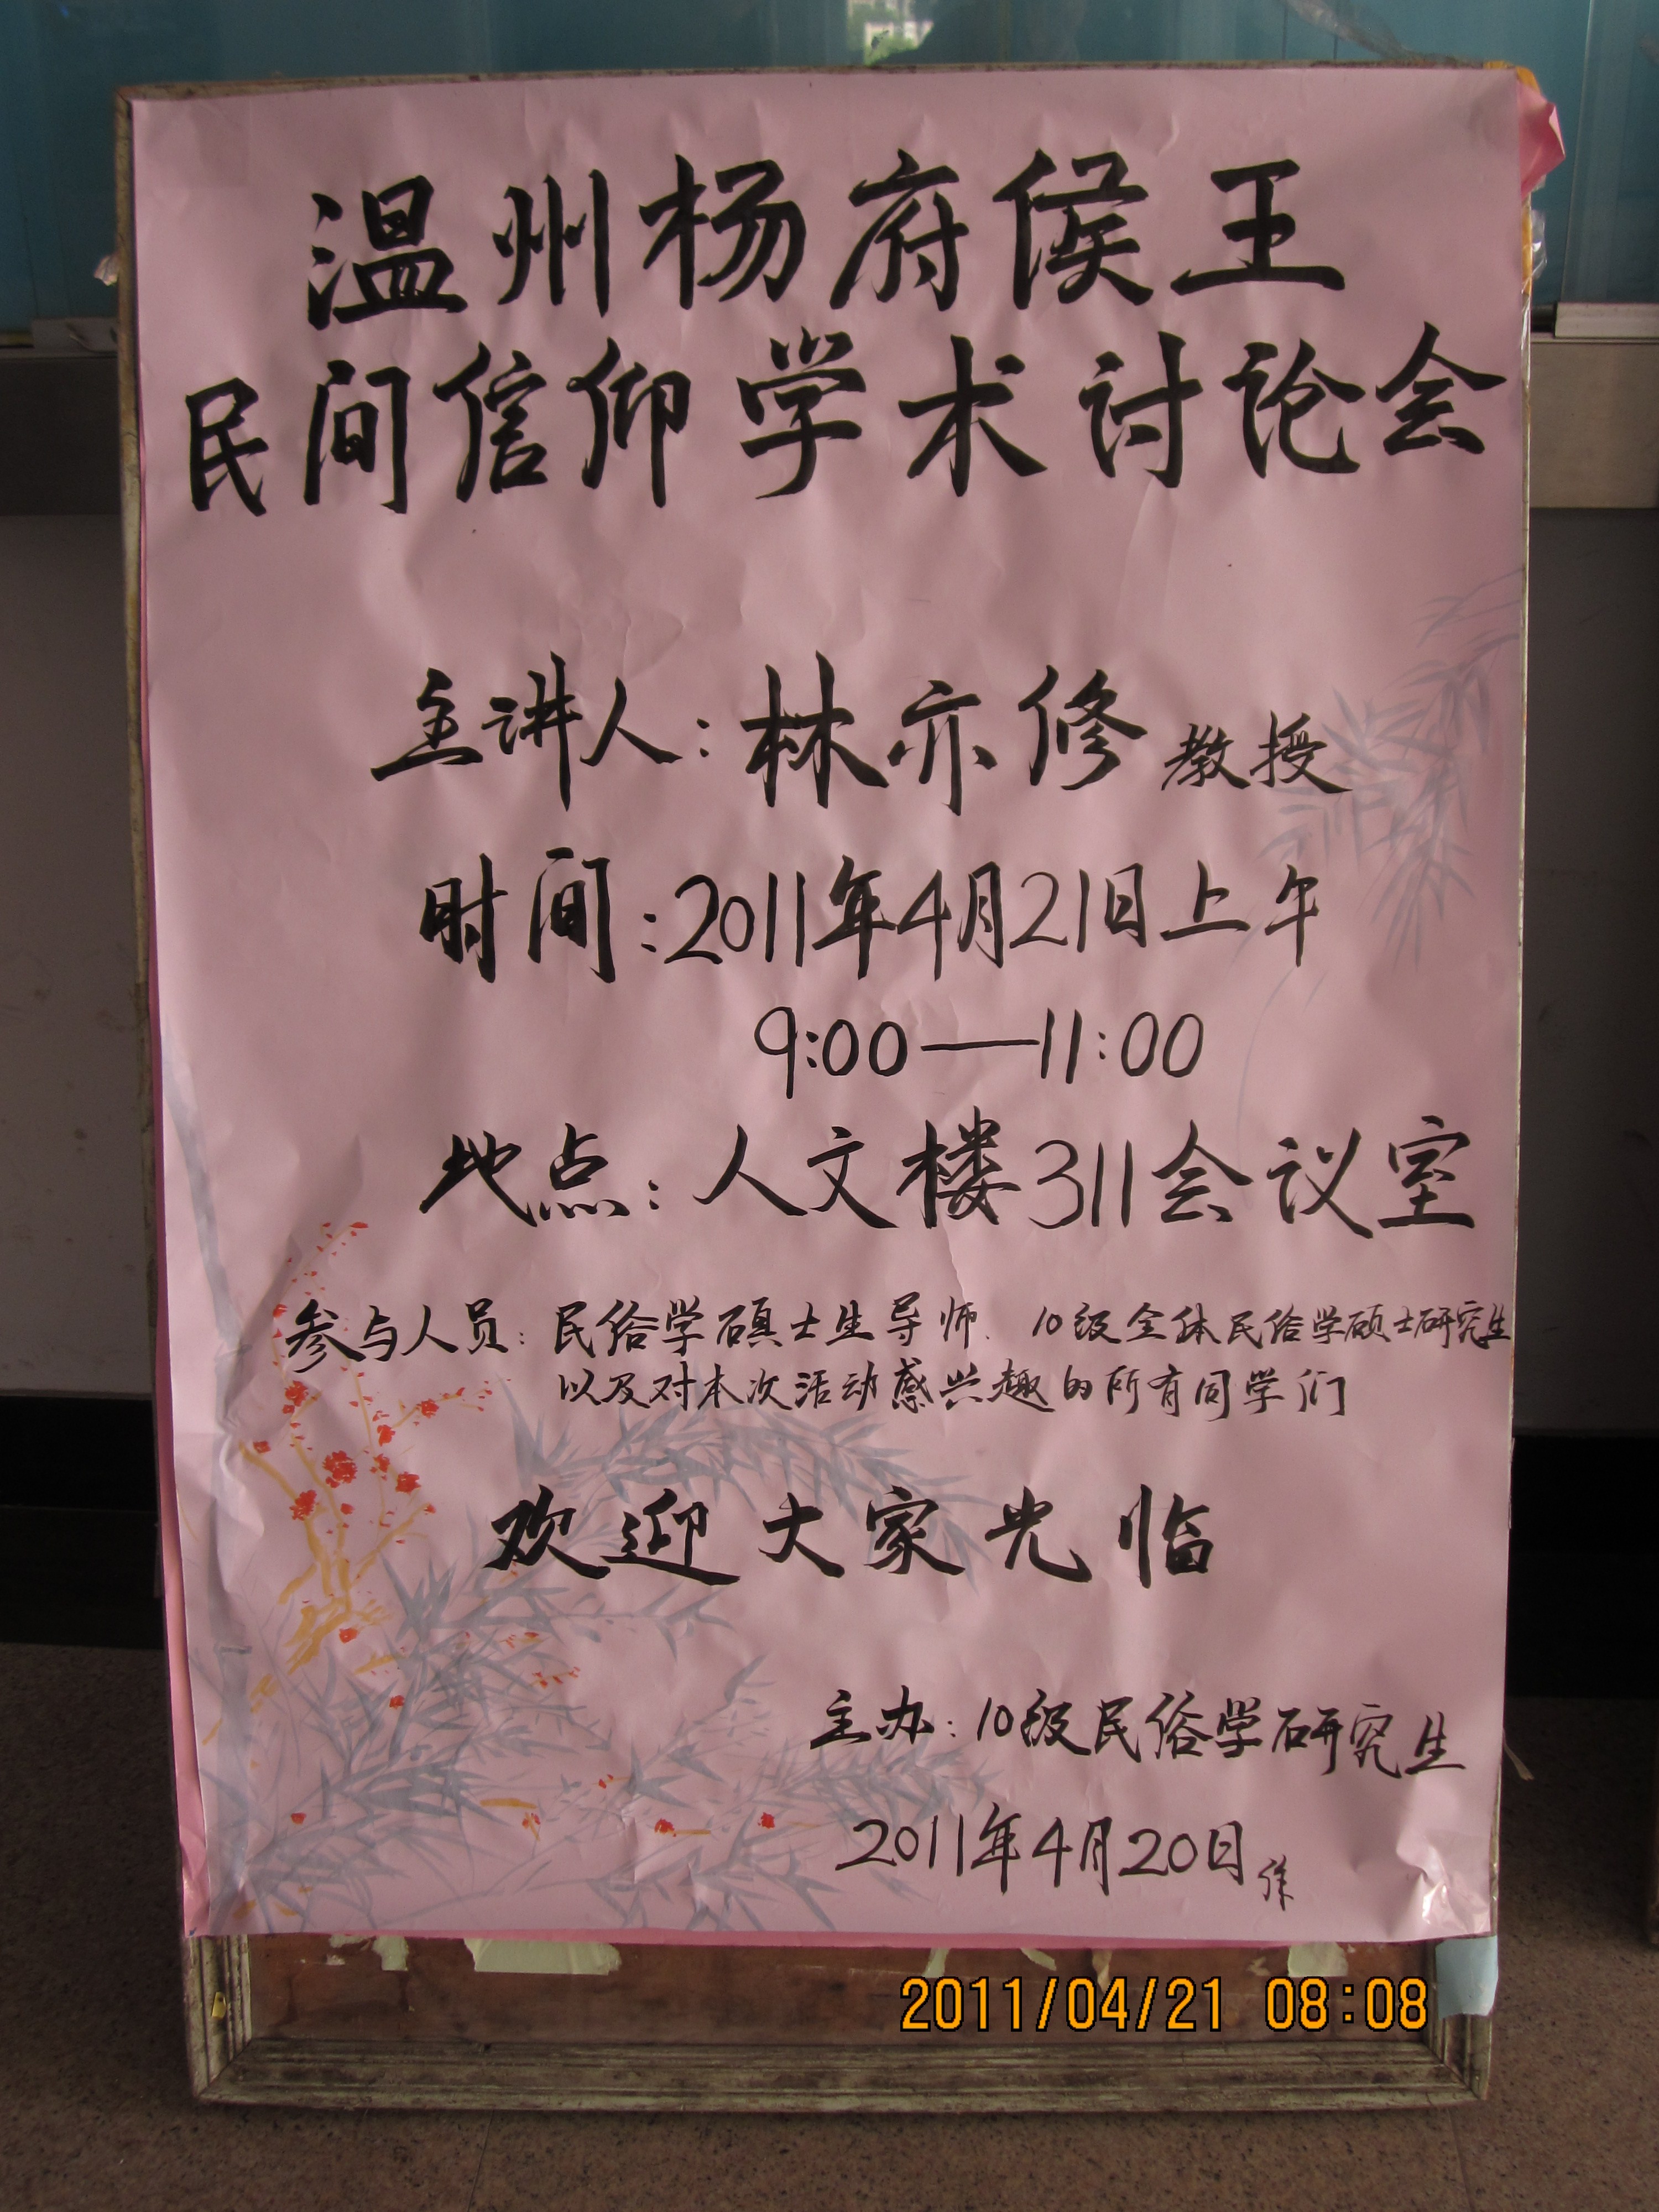 温州杨府侯王
民间信仰学术讨论会
主讲人:林亦修教授
时间:2011年4月21日上午
9:00—11:00
地点:人文楼311会议室
参与人员:民俗学硕士生导师、10级全体民俗学硕士研究生
以及对本次活动感兴趣的所有同学们
欢迎大家光临
主办:10级民俗学研究生
2011年4月20日
2011/04/21 08:08